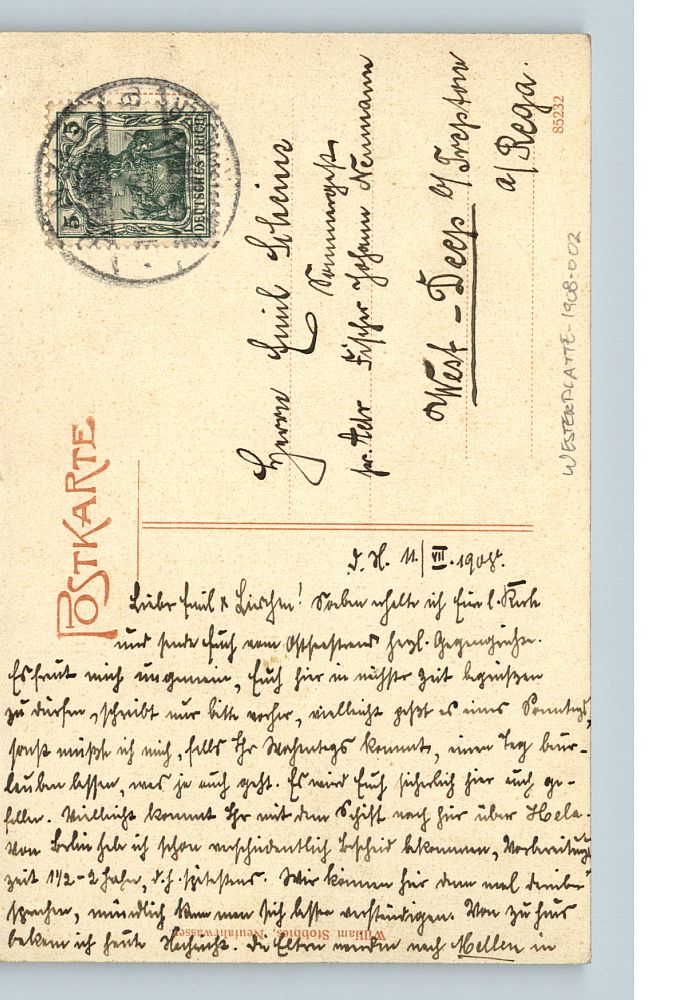 POSTKARTE
5 5
DEUTSCHES REICH
Herrn Emil Scheine
Sommergast
pr. Adr Fischer Johann Neumann
West-Deep b/ Treptow
a/ Rega.
85232
WESTERPLATTE-1908-002
D. N. 11./VII.1908.
Liebe Emil & Lieschen! Soeben erhalte ich Eure l. Karte
und sende Euch vom Ostseestrand herzl. Gegengrüße.
Es freut mich ungemein, Euch hier in nächster Zeit begrüßen
zu dürfen, schreibt nur bitte vorher, vielleicht geht es eines Sonntags,
sonst müßte ich mich, falls Ihr Wochentags kommt, einen Tag beur-
lauben lassen, was ja auch geht. Es wird Euch sicherlich hier auch ge-
fallen. Vielleicht kommt Ihr mit dem Schiff nach hier über Hela.
Von Berlin habe ich schon verschiedentlich Bescheid bekommen, Vorbereitungs
zeit 1 1/2 - 2 Jahre, d.h. spätestens. Wir können hier dann mal darüber
sprechen, mündlich kann man sich besser verständigen. Von zu Haus
bekam ich heute Nachricht. Die Eltern werden nach Mellen in
William Stobbies, Neufahrwasser